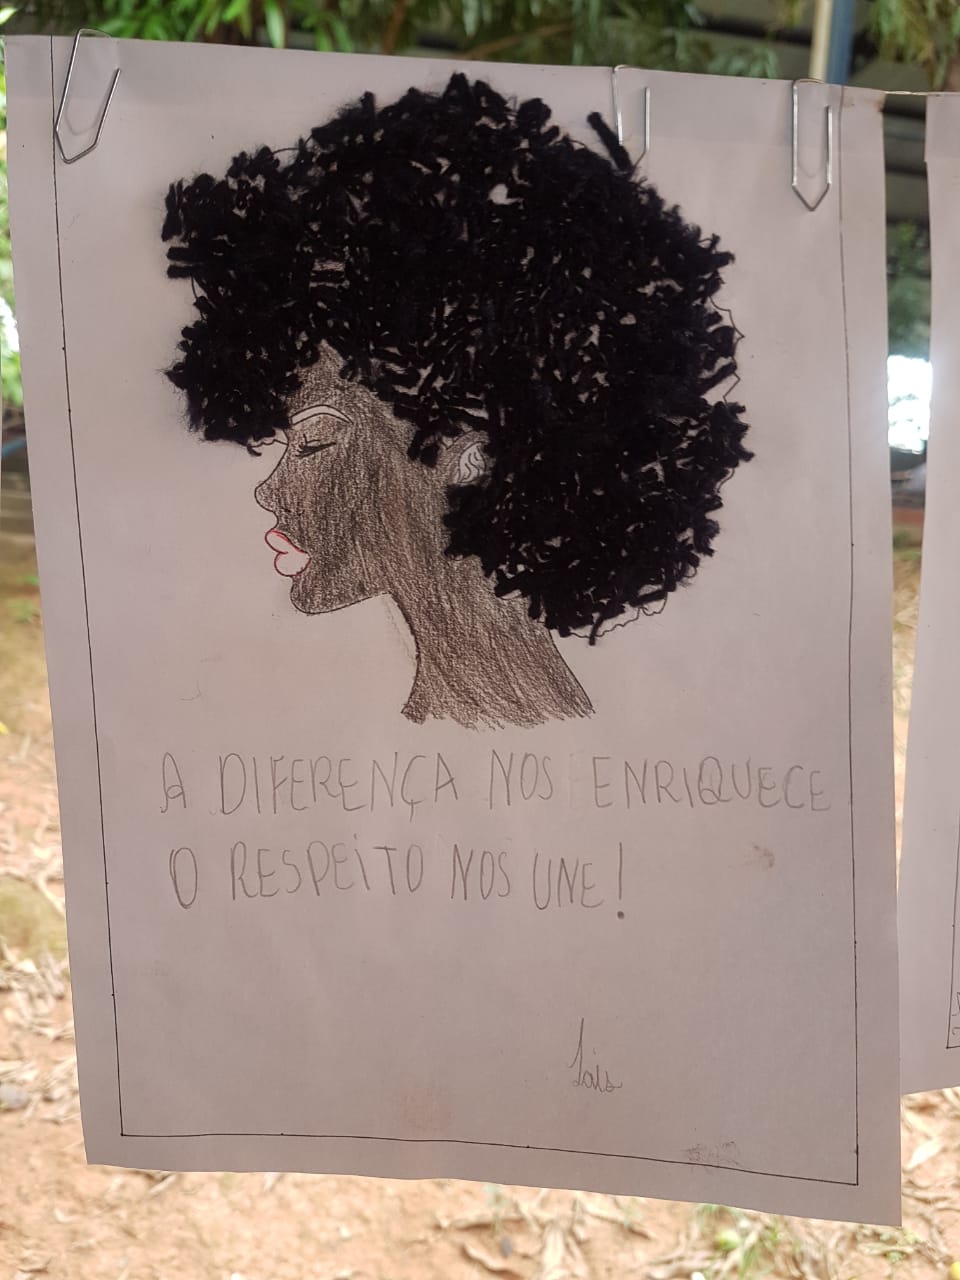 A DIFERENÇA NOS ENRIQUECE
O RESPEITO NOS UNE!
Lais